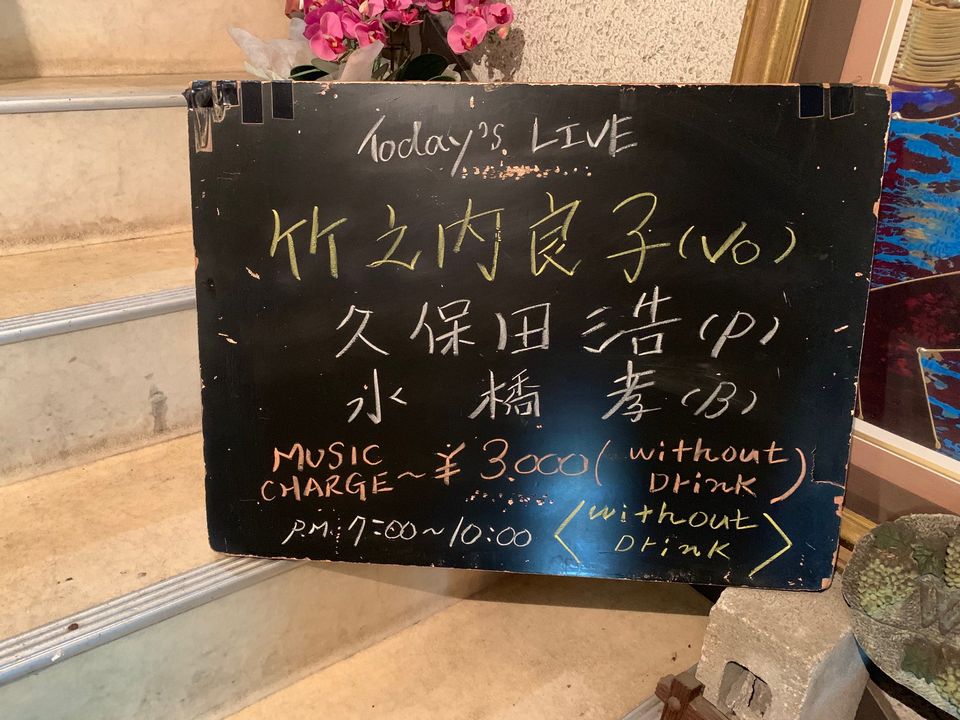 Today's LIVE
竹之内良子(Vo)
久保田浩(P)
水橋孝(B)
MUSIC CHARGE~¥3.000(without Drink)
P.M. 7:00~10:00 <without Drink>